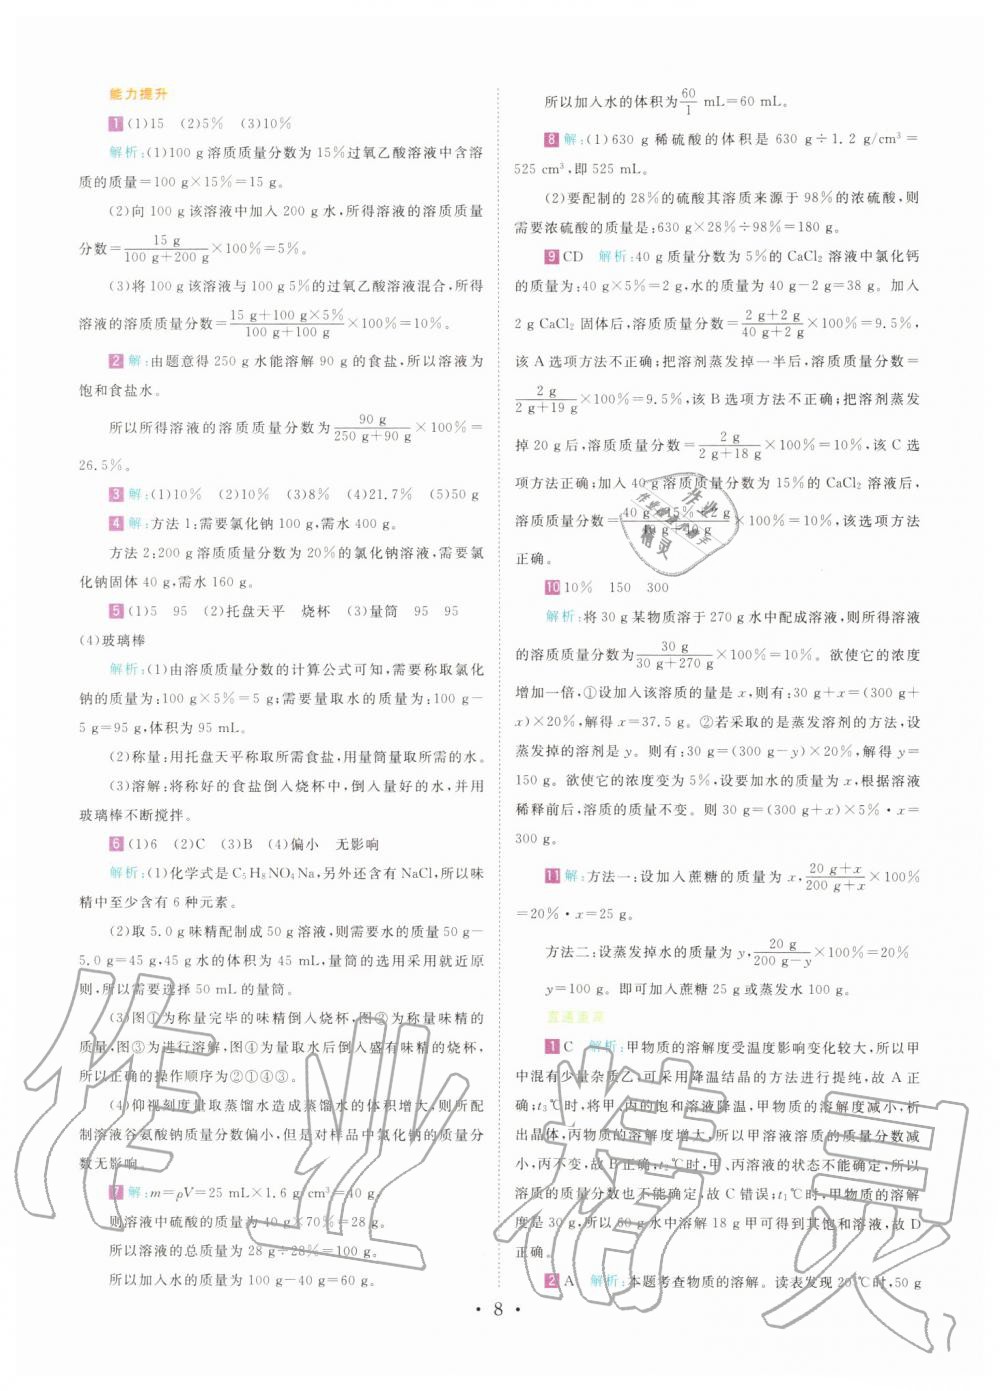 能力提升
1 (1)15 (2)5% (3)10%
解析:(1)100 g溶质质量分数为15%过氧乙酸溶液中含溶
质的质量=100 g×15%=15 g。
(2)向 100 g该溶液中加入 200 g水,所得溶液的溶质质量
分数=15 g/(100 g+200 g)×100%=5%。
(3)将 100 g该溶液与 100 g5%的过氧乙酸溶液混合,所得
溶液的溶质质量分数=(15 g+100 g×5%)/(100 g+100 g)×100%=10%。
2 解:由题意得 250 g水能溶解 90 g的食盐,所以溶液为
饱和食盐水。
所以所得溶液的溶质质量分数=90 g/(250 g+90 g)×100%=
26.5%。
3 解:(1)10% (2)10% (3)8% (4)21.7% (5)50 g
4 解:方法 1:需要氯化钠 100 g,需水 400 g。
方法 2:200 g溶质质量分数为 20%的氯化钠溶液,需要氯
化钠固体 40 g,需水 160 g。
5 (1)5 95 (2)托盘天平 烧杯 (3)量筒 95 95
(4)玻璃棒
解析:(1)由溶质质量分数的计算公式可知,需要称取氯化
钠的质量为:100 g×5%=5 g;需要量取水的质量为:100 g-
5 g=95 g,体积为 95 mL。
(2)称量:用托盘天平称取所需食盐,用量筒量取所需的水。
(3)溶解:将称好的食盐倒入烧杯中,倒入量好的水,并用
玻璃棒不断搅拌。
6 (1)6 (2)C (3)B (4)偏小 无影响
解析:(1)化学式是C5H8NO4Na,另外还含有NaCl,所以味
精中至少含有 6 种元素。
(2)取 5.0 g味精配制成 50 g溶液,则需要水的质量 50 g-
5.0 g=45 g,45 g水的体积为 45 mL,量筒的选用采用就近原
则,所以需要选择 50 mL的量筒。
(3)图①为称量完毕的味精倒入烧杯,图②为称量味精的
质量,图③为进行溶解,图④为量取水后倒入盛有味精的烧杯,
所以正确的操作顺序为②①④③。
(4)仰视刻度量取蒸馏水造成蒸馏水的体积增大,则所配
制溶液谷氨酸钠质量分数偏小,但是对样品中氯化钠的质量分
数无影响。
7 解:m=ρV=25 mL×1.6 g/cm3=40 g,
则溶液中硫酸的质量为 40 g×70%=28 g。
所以溶液的总质量为 28 g÷28%=100 g。
所以加入水的质量为 100 g-40 g=60 g。
所以加入水的体积为60/1 mL=60 mL。
8 解:(1)630 g稀硫酸的体积是 630 g÷1.2 g/cm3=
525 cm3,即 525 mL。
(2)要配制的 28%的硫酸其溶质来源于 98%的浓硫酸,则
需要浓硫酸的质量是:630 g×28%÷98%=180 g。
9 CD 解析:40 g质量分数为 5%的 CaCl2 溶液中氯化钙
的质量为:40 g×5%=2 g,水的质量为 40 g-2 g=38 g。加入
2 g CaCl2 固体后,溶质质量分数=(2 g+2 g)/(40 g+2 g)×100%=9.5%,
该 A选项方法不正确;把溶剂蒸发掉一半后,溶质质量分数=
2 g/(2 g+19 g)×100%=9.5%,该 B选项方法不正确;把溶剂蒸发
掉 20 g后,溶质质量分数=2 g/(2 g+18 g)×100%=10%,该 C选
项方法正确;加入 40 g溶质质量分数为 15%的CaCl2溶液后,
溶质质量分数=(40 g×15%+2 g)/(40 g+40 g)×100%=10%,该选项方法
正确。
10 10% 150 300
解析:将 30 g某物质溶于 270 g水中配成溶液,则所得溶液
的溶质质量分数为30 g/(30 g+270 g)×100%=10%。欲使它的浓度
增加一倍,①设加入该溶质的量是 x,则有:30 g+x=(300 g+
x)×20%,解得 x=37.5 g。②若采取的是蒸发溶剂的方法,设
蒸发掉的溶剂是 y。则有:30 g=(300 g-y)×20%,解得 y=
150 g。欲使它的浓度变为 5%,设要加水的质量为 x,根据溶液
稀释前后,溶质的质量不变。则 30 g=(300 g+x)×5%・x=
300 g。
11 解:方法一:设加入蔗糖的质量为 x,(20 g+x)/(200 g+x)×100%
=20%・x=25 g。
方法二:设蒸发掉水的质量为 y,20 g/(200 g-y)×100%=20%
y=100 g。即可加入蔗糖 25 g或蒸发水 100 g。
直通重高
1 C 解析:甲物质的溶解度受温度影响变化较大,所以甲
中混有少量杂质乙,可采用降温结晶的方法进行提纯,故 A正
确;t3℃时,将甲、丙的饱和溶液降温,甲物质的溶解度减小,析
出晶体,丙物质的溶解度增大,所以甲溶液溶质的质量分数减
小,丙不变,故 B正确;t2℃时,甲、丙溶液的状态不能确定,所以
溶质的质量分数也不能确定,故 C错误;t1℃时,甲物质的溶解
度是 30 g,所以 60 g水中溶解 18 g甲可得到其饱和溶液,故 D
正确。
2 A 解析:本题考查物质的溶解。读表发现 20℃时,50 g
・8・
作业精灵